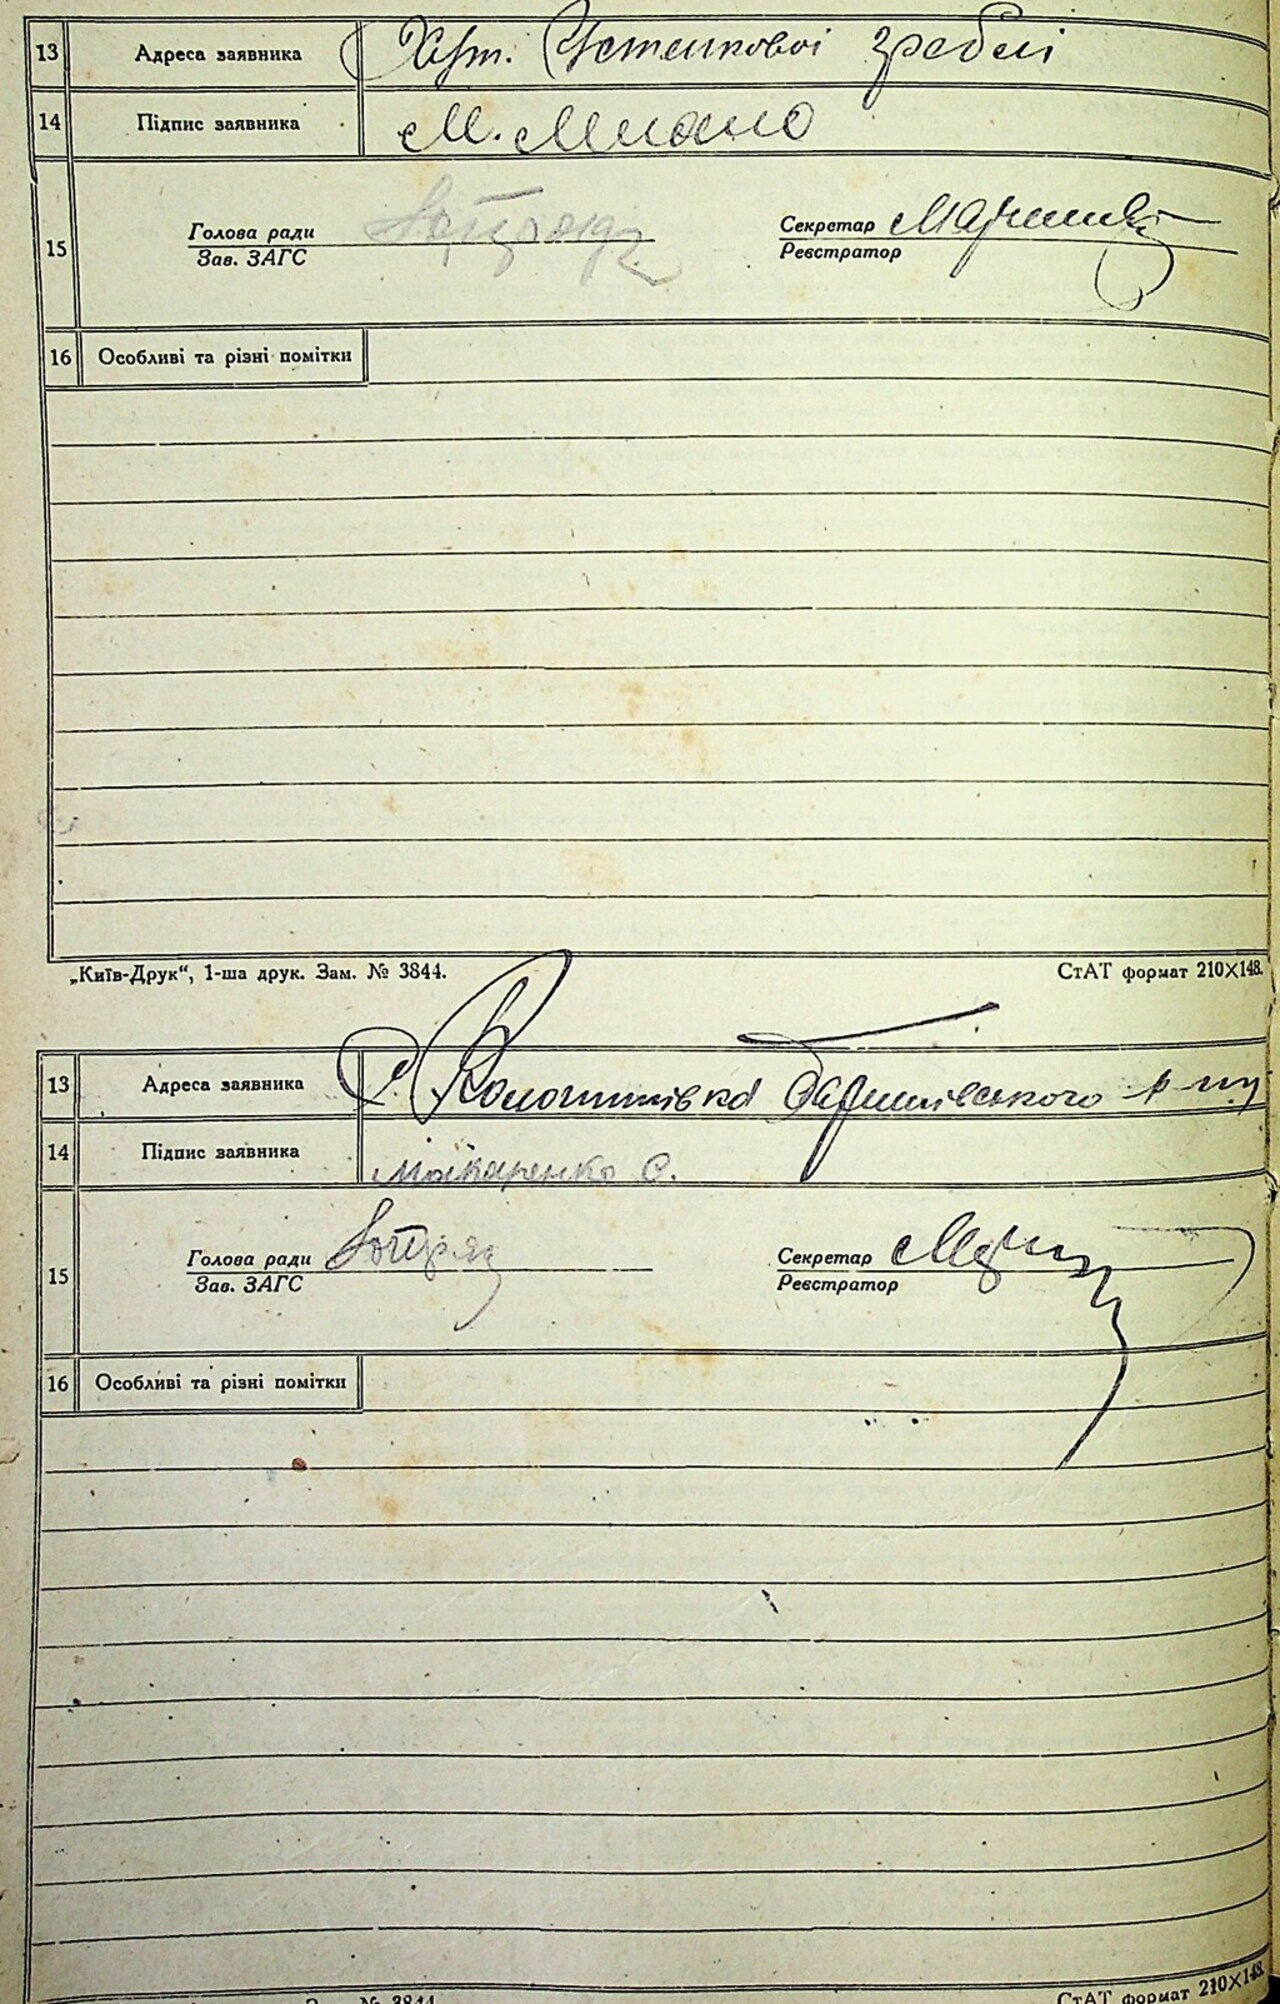 13 Адреса заявника Хут. Устенкової греблі
14 Підпис заявника М.
15 Голова ради Зав. ЗАГС Секретар Реєстратор
16 Особливі та різні помітки
„Київ-Друк“, 1-ша друк. Зам. № 3844. СтАТ формат 210×148.
13 Адреса заявника с. р-ну
14 Підпис заявника Макаренко С.
15 Голова ради Зав. ЗАГС Секретар Реєстратор
16 Особливі та різні помітки
№ 3844 СтАТ формат 210×148.